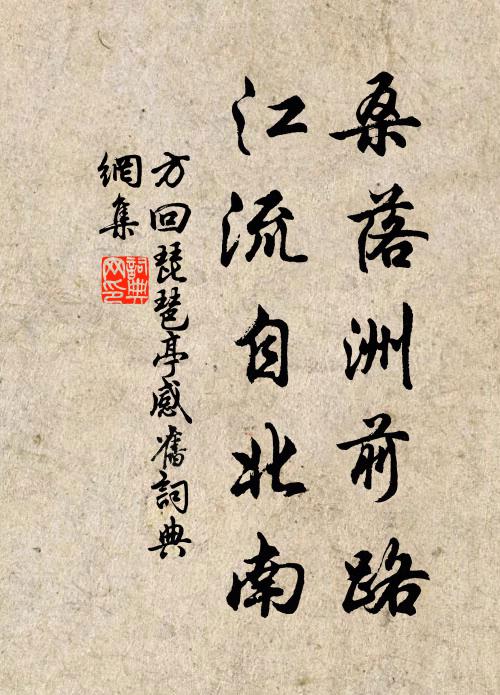 桑落洲前路
江流自北南
方回琵琶亭感舊詞典
網集
詞典
网印